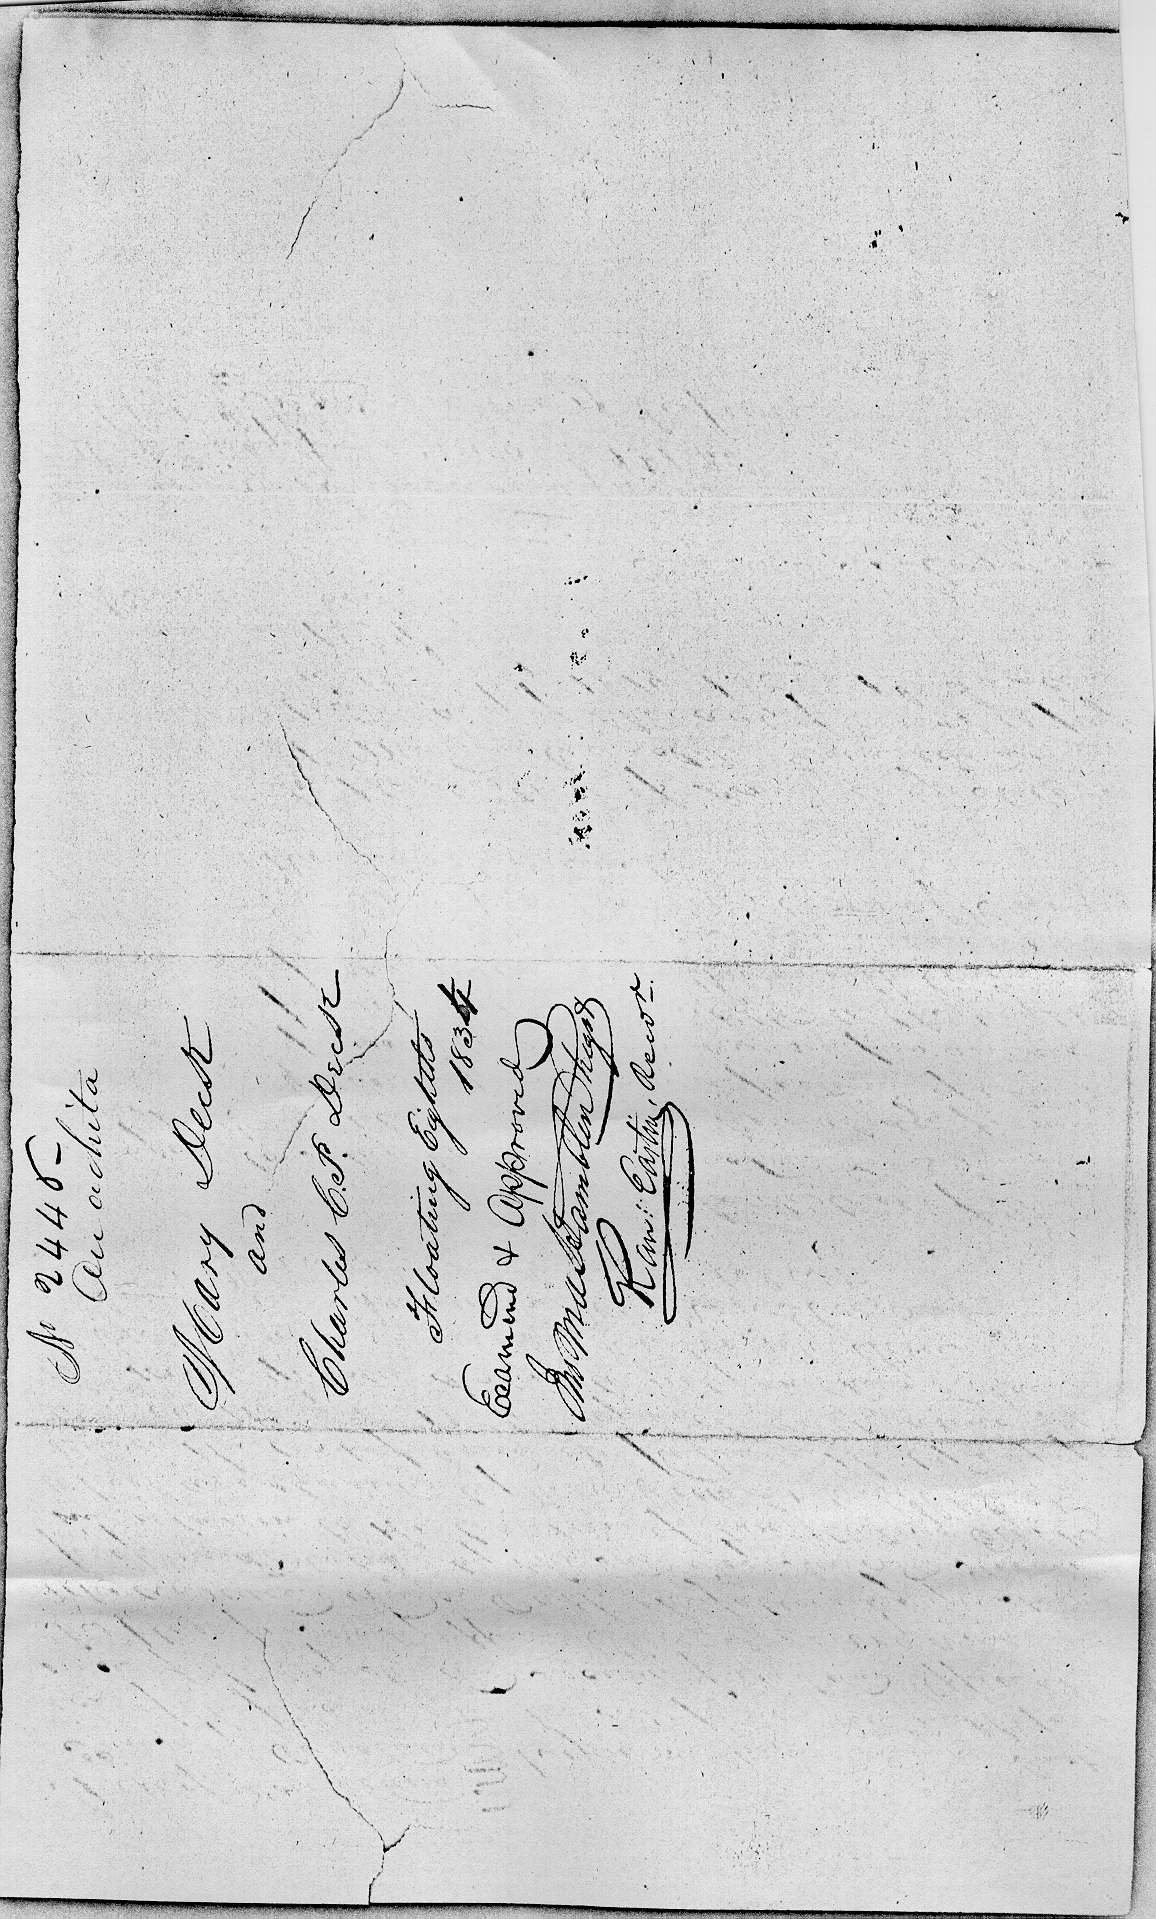 No 2445
Ouachita
Mary Desk
and
Charles C. P. Desk
Floating Eights
1834
Examend & Approved
Jno MacTamblin Regst
Ran: Eastin, Recor